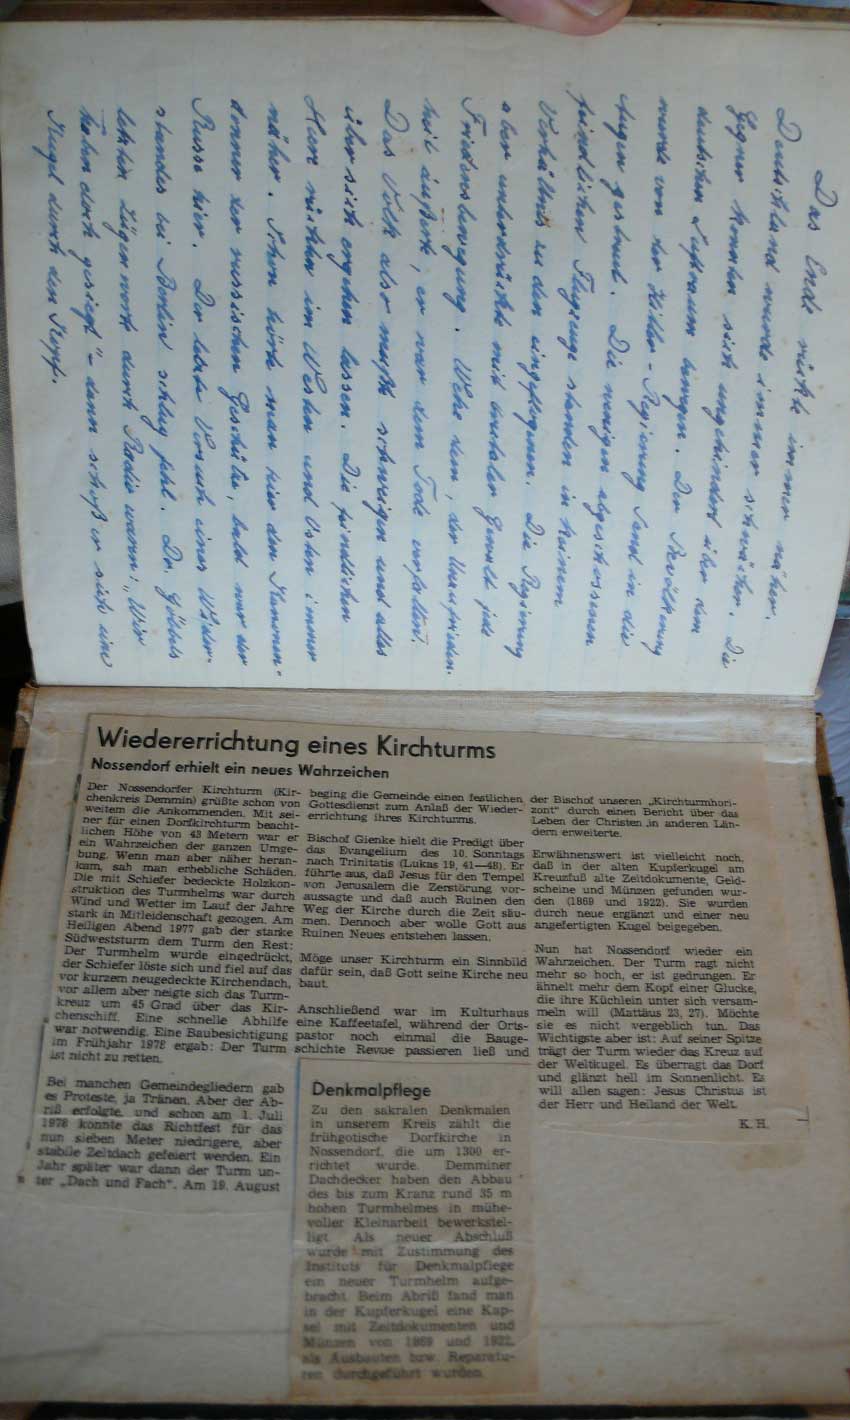 Das Ende rückte immer näher.
Deutschland wurde immer schwächer. Die
Gegner konnten sich ungehindert über dem
deutschen Luftraum bewegen. Der Bevölkerung
wurde von der Hitler-Regierung Sand in die
Augen gestreut. Die wenigen abgeschossenen
feindlichen Flugzeuge standen in keinem
Verhältnis zu den eingeflogenen. Die Regierung
aber unterdrückte mit brutaler Gewalt jede
Friedensbewegung. Wehe dem, der Unzufrieden-
heit äußerte, er war dem Tode verfallen!
Das Volk also mußte schweigen und alles
über sich ergehen lassen. Die feindlichen
Heere rückten im Westen und Osten immer
näher. Schon hörte man hier den Kanonen-
donner der russischen Geschütze, bald war der
Russe hier. Der letzte Versuch eines Wider-
standes bei Berlin schlug fehl. Dr. Göbbels
letzten Lügenworte durch Radio waren: „Wir
haben doch gesiegt“ - dann schoß er sich eine
Kugel durch den Kopf.
Wiedererrichtung eines Kirchturms
Nossendorf erhielt ein neues Wahrzeichen
Der Nossendorfer Kirchturm (Kir-
chenkreis Demmin) grüßte schon von
weitem die Ankommenden. Mit sei-
ner für einen Dorfkirchturm beacht-
lichen Höhe von 43 Metern war er
ein Wahrzeichen der ganzen Umge-
bung. Wenn man aber näher heran-
kam, sah man erhebliche Schäden.
Die mit Schiefer bedeckte Holzkon-
struktion des Turmhelms war durch
Wind und Wetter im Lauf der Jahre
stark in Mitleidenschaft gezogen. Am
Heiligen Abend 1977 gab der starke
Südweststurm dem Turm den Rest:
Der Turmhelm wurde eingedrückt,
der Schiefer löste sich und fiel auf das
vor kurzem neugedeckte Kirchendach,
vor allem aber neigte sich das Turm-
kreuz um 45 Grad über das Kir-
chenschiff. Eine schnelle Abhilfe
war notwendig. Eine Baubesichtigung
im Frühjahr 1978 ergab: Der Turm
ist nicht zu retten.
Bei manchen Gemeindegliedern gab
es Proteste, ja Tränen. Aber der Ab-
riß erfolgte, und schon am 1. Juli
1978 konnte das Richtfest für das
nun sieben Meter niedrigere, aber
stabile Zeltdach gefeiert werden. Ein
Jahr später war dann der Turm un-
ter „Dach und Fach“. Am 19. August
beging die Gemeinde einen festlichen
Gottesdienst zum Anlaß der Wieder-
errichtung ihres Kirchturms.
Bischof Gienke hielt die Predigt über
das Evangelium des 10. Sonntags
nach Trinitatis (Lukas 19, 41—48). Er
führte aus, daß Jesus für den Tempel
von Jerusalem die Zerstörung vor-
aussagte und daß auch Ruinen den
Weg der Kirche durch die Zeit säu-
men. Dennoch aber wolle Gott aus
Ruinen Neues entstehen lassen.
Möge unser Kirchturm ein Sinnbild
dafür sein, daß Gott seine Kirche neu
baut.
Anschließend war im Kulturhaus
eine Kaffeetafel, während der Orts-
pastor noch einmal die Bauge-
schichte Revue passieren ließ und
der Bischof unseren „Kirchturmhori-
zont“ durch einen Bericht über das
Leben der Christen in anderen Län-
dern erweiterte.
Erwähnenswert ist vielleicht noch,
daß in der alten Kupferkugel am
Kreuzfuß alte Zeitdokumente, Geld-
scheine und Münzen gefunden wur-
den (1869 und 1922). Sie wurden
durch neue ergänzt und einer neu
angefertigten Kugel beigegeben.
Nun hat Nossendorf wieder ein
Wahrzeichen. Der Turm ragt nicht
mehr so hoch, er ist gedrungen. Er
ähnelt mehr dem Kopf einer Glucke,
die ihre Küchlein unter sich versam-
meln will (Mattäus 23, 27). Möchte
sie es nicht vergeblich tun. Das
Wichtigste aber ist: Auf seiner Spitze
trägt der Turm wieder das Kreuz auf
der Weltkugel. Es überragt das Dorf
und glänzt hell im Sonnenlicht. Es
will allen sagen: Jesus Christus ist
der Herr und Heiland der Welt.
K. H.
Denkmalpflege
Zu den sakralen Denkmalen
in unserem Kreis zählt die
frühgotische Dorfkirche in
Nossendorf, die um 1300 er-
richtet wurde. Demminer
Dachdecker haben den Abbau
des bis zum Kranz rund 35 m
hohen Turmhelmes in mühe-
voller Kleinarbeit bewerkstel-
ligt. Als neuer Abschluß
wurde mit Zustimmung des
Instituts für Denkmalpflege
ein neuer Turmhelm aufge-
bracht. Beim Abriß fand man
in der Kupferkugel eine Kap-
sel mit Zeitdokumenten und
Münzen von 1869 und 1922,
als Ausbauten bzw. Reparatu-
ren durchgeführt wurden.